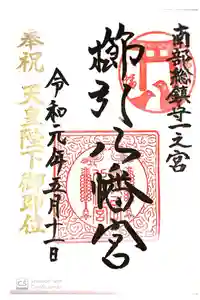 南部総鎮守一之宮
櫛引八幡宮
令和元年五月十一日
奉祝 天皇陛下御即位
CS